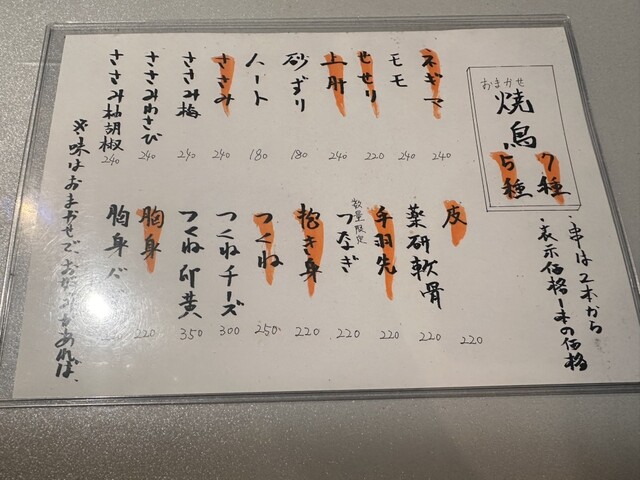 おまかせ
焼鳥
7種
5種
・串は2本から
・表示価格1本の価格
ネギマ 240
モモ 240
せせり 220
上肝 240
砂ずり 180
ハート 180
ささみ 240
ささみ梅 240
ささみわさび 240
ささみ柚胡椒 240
皮 220
薬研軟骨 220
手羽先 220
数量限定
つなぎ 220
抱き身 220
つくね 250
つくねチーズ 300
つくね卵黄 350
胸身 220
胸身
※味はおまかせで、お好みがあれば、